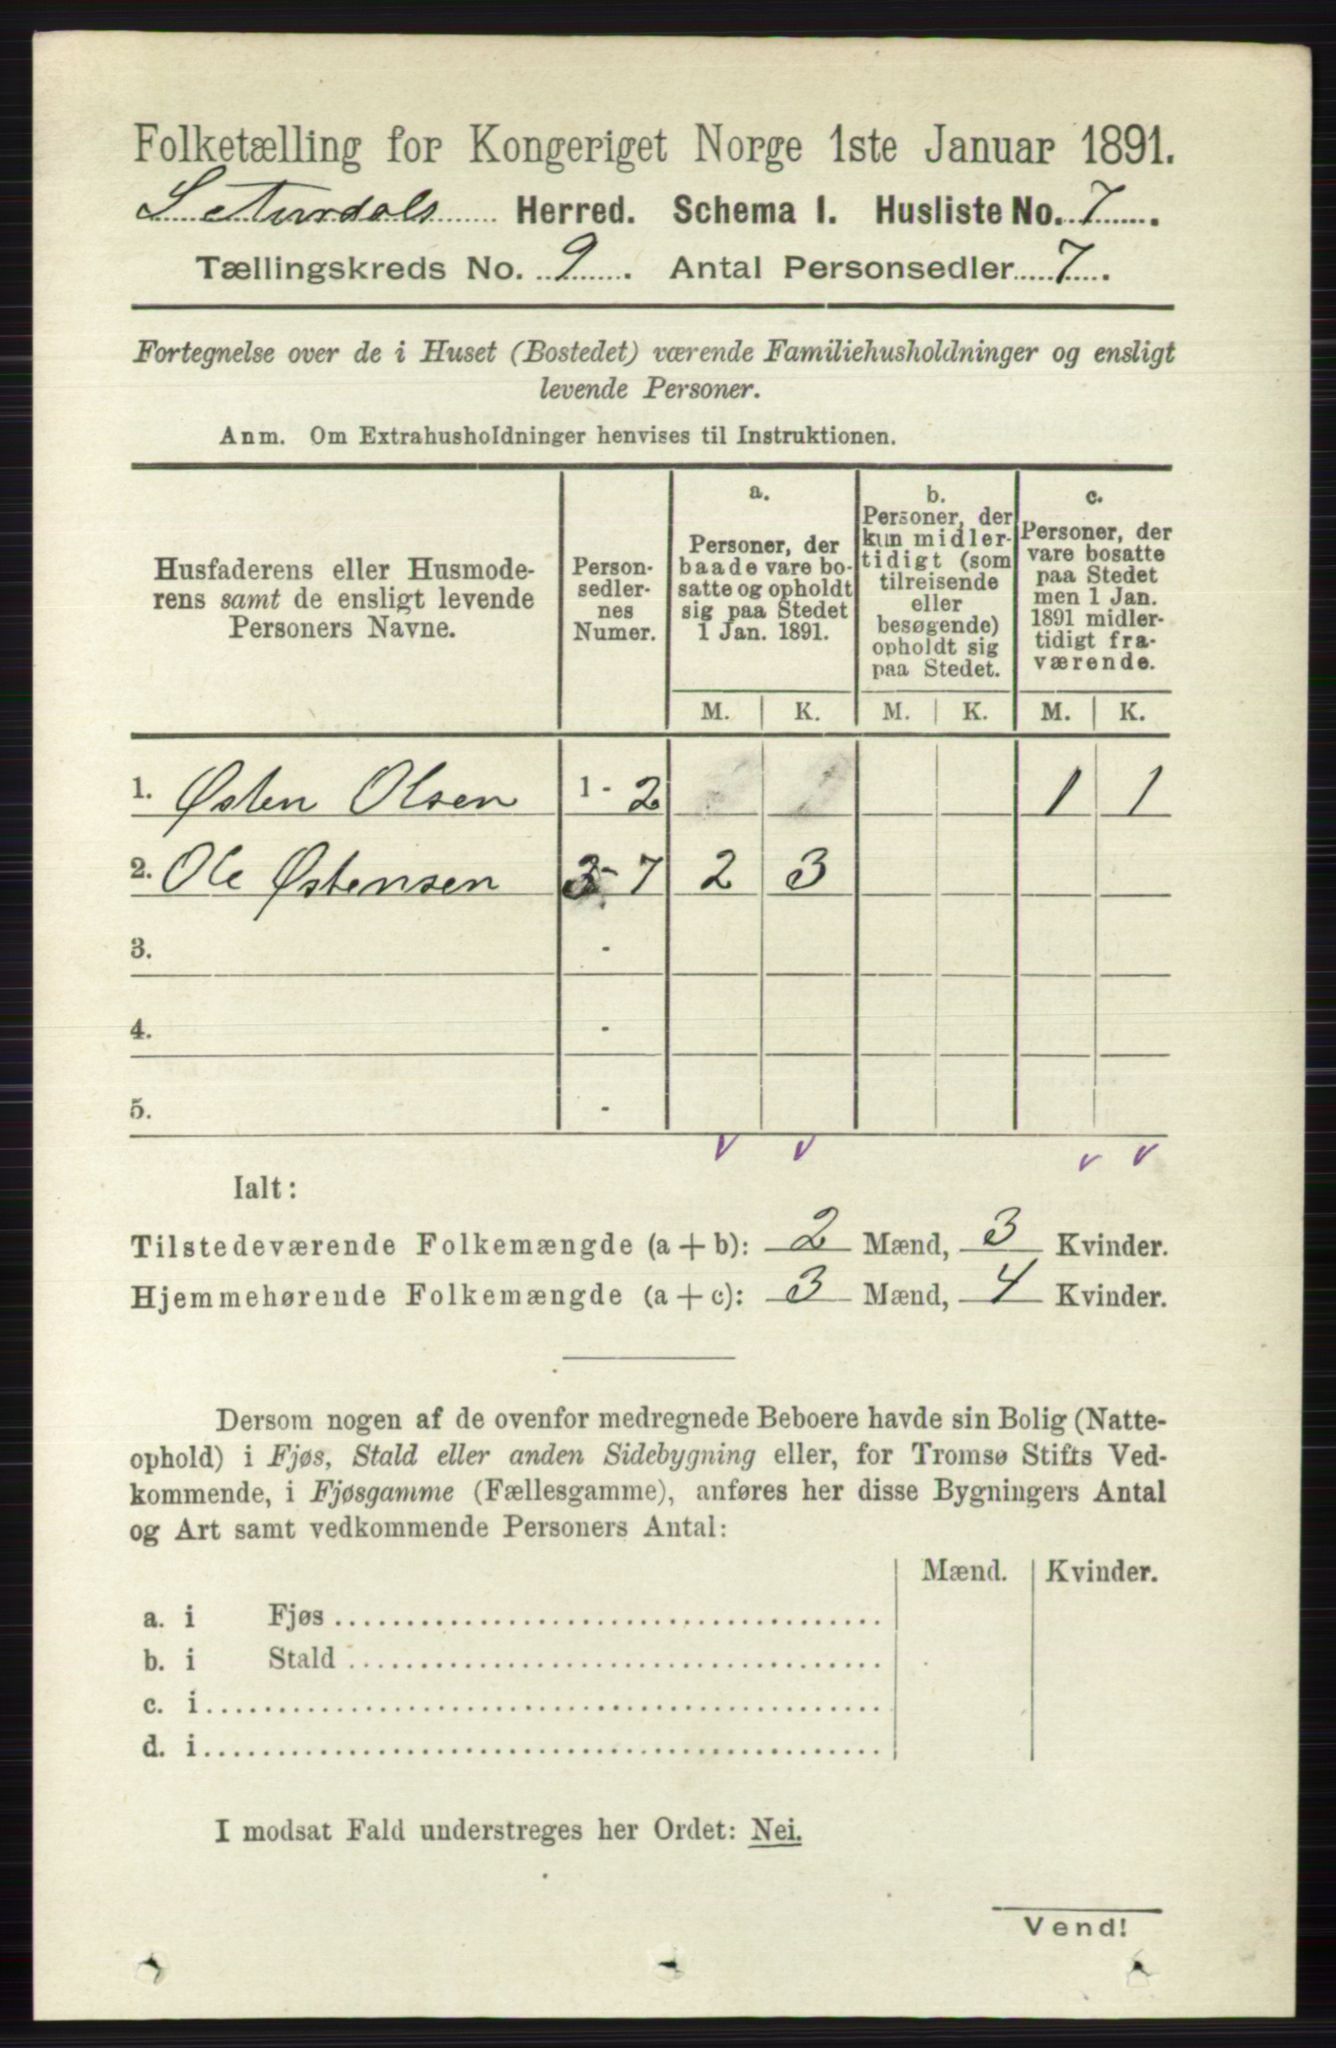 Folketælling for Kongeriget Norge 1ste Januar 1891.
S. Aurdals Herred. Schema I. Husliste No. 7.
Tællingskreds No. 9. Antal Personsedler 7.
Fortegnelse over de i Huset (Bostedet) værende Familiehusholdninger og ensligt
levende Personer.
Anm. Om Extrahusholdninger henvises til Instruktionen.
Husfaderens eller Husmode-
rens samt de ensligt levende
Personers Navne.
Person-
sedler-
nes
Numer.
a.
Personer, der
baade vare bo-
satte og opholdt
sig paa Stedet
1 Jan. 1891.
b.
Personer, der
kun midler-
tidigt (som
tilreisende
eller
besøgende)
opholdt sig
paa Stedet.
c.
Personer, der
vare bosatte
paa Stedet
men 1 Jan.
1891 midler-
tidigt fra-
værende.
M. K. M. K. M. K.
1. Østen Olsen 1 - 2 1 1
2. Ole Østensen 3 - 7 2 3
3. -
4. -
5. -
Ialt:
Tilstedeværende Folkemængde (a + b): 2 Mænd, 3 Kvinder.
Hjemmehørende Folkemængde (a + c): 3 Mænd, 4 Kvinder.
Dersom nogen af de ovenfor medregnede Beboere havde sin Bolig (Natte-
ophold) i Fjøs, Stald eller anden Sidebygning eller, for Tromsø Stifts Ved-
kommende, i Fjøsgamme (Fællesgamme), anføres her disse Bygningers Antal
og Art samt vedkommende Personers Antal:
Mænd. Kvinder.
a. i Fjøs
b. i Stald
c. i
d. i
I modsat Fald understreges her Ordet: Nei.
Vend!